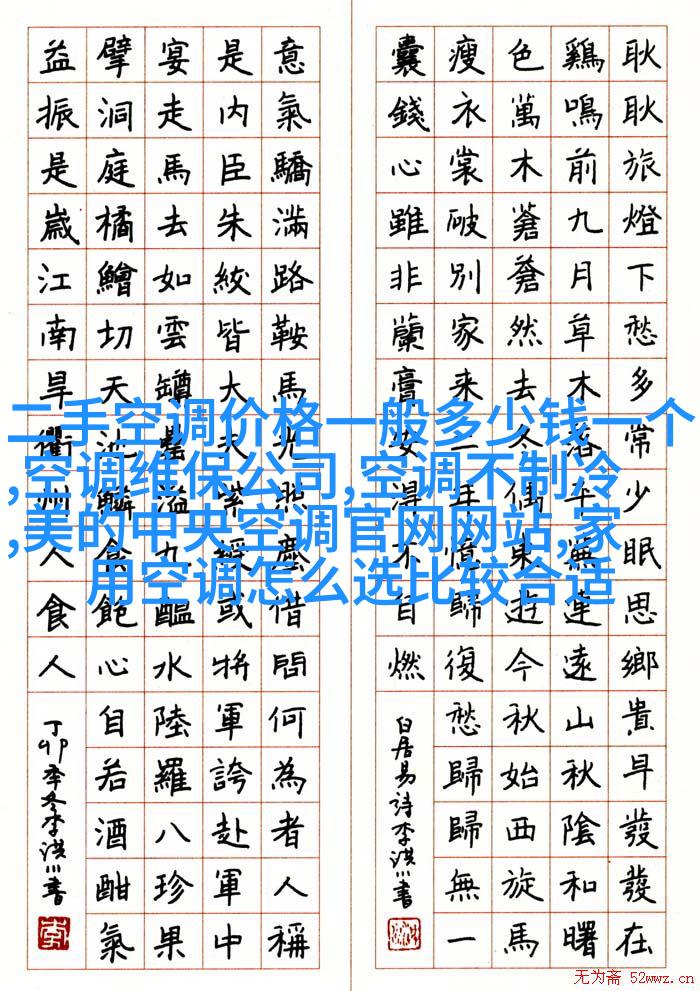 耿耿旅燈下愁多常少眠思鄉貴早發發在
鷄鳴前九月草木落平蕪連遠山秋陰和曙
色萬木蒼蒼然去偶東遊今秋始西旋馬
瘦衣裳破別家來二年憶歸復愁歸歸無一
囊錢心雖非蘭膏安得不自燃
白居易詩李洪川書
意氣驕滿路鞍馬光照塵借問何為者人稱
是內臣朱紱皆大夫紫綬或將軍誇赴軍中
宴走馬去如雲罇罍溢九醞水陸羅八珍果
擘洞庭橘鱠切天池鱗食飽心自若酒酣氣
益振是歲江南旱衢州人食人
丁卯季冬李洪川書
二手空调价格一般多少钱一个
,空调维保公司,空调不制冷
,美的中央空调官网网站,家
用空调怎么选比较合适
无为斋 52wwz.cn